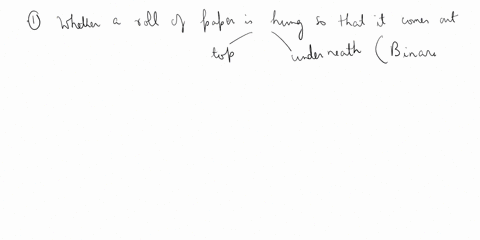 ① Whether a roll of paper is hung so that it comes out
top underneath (Binare